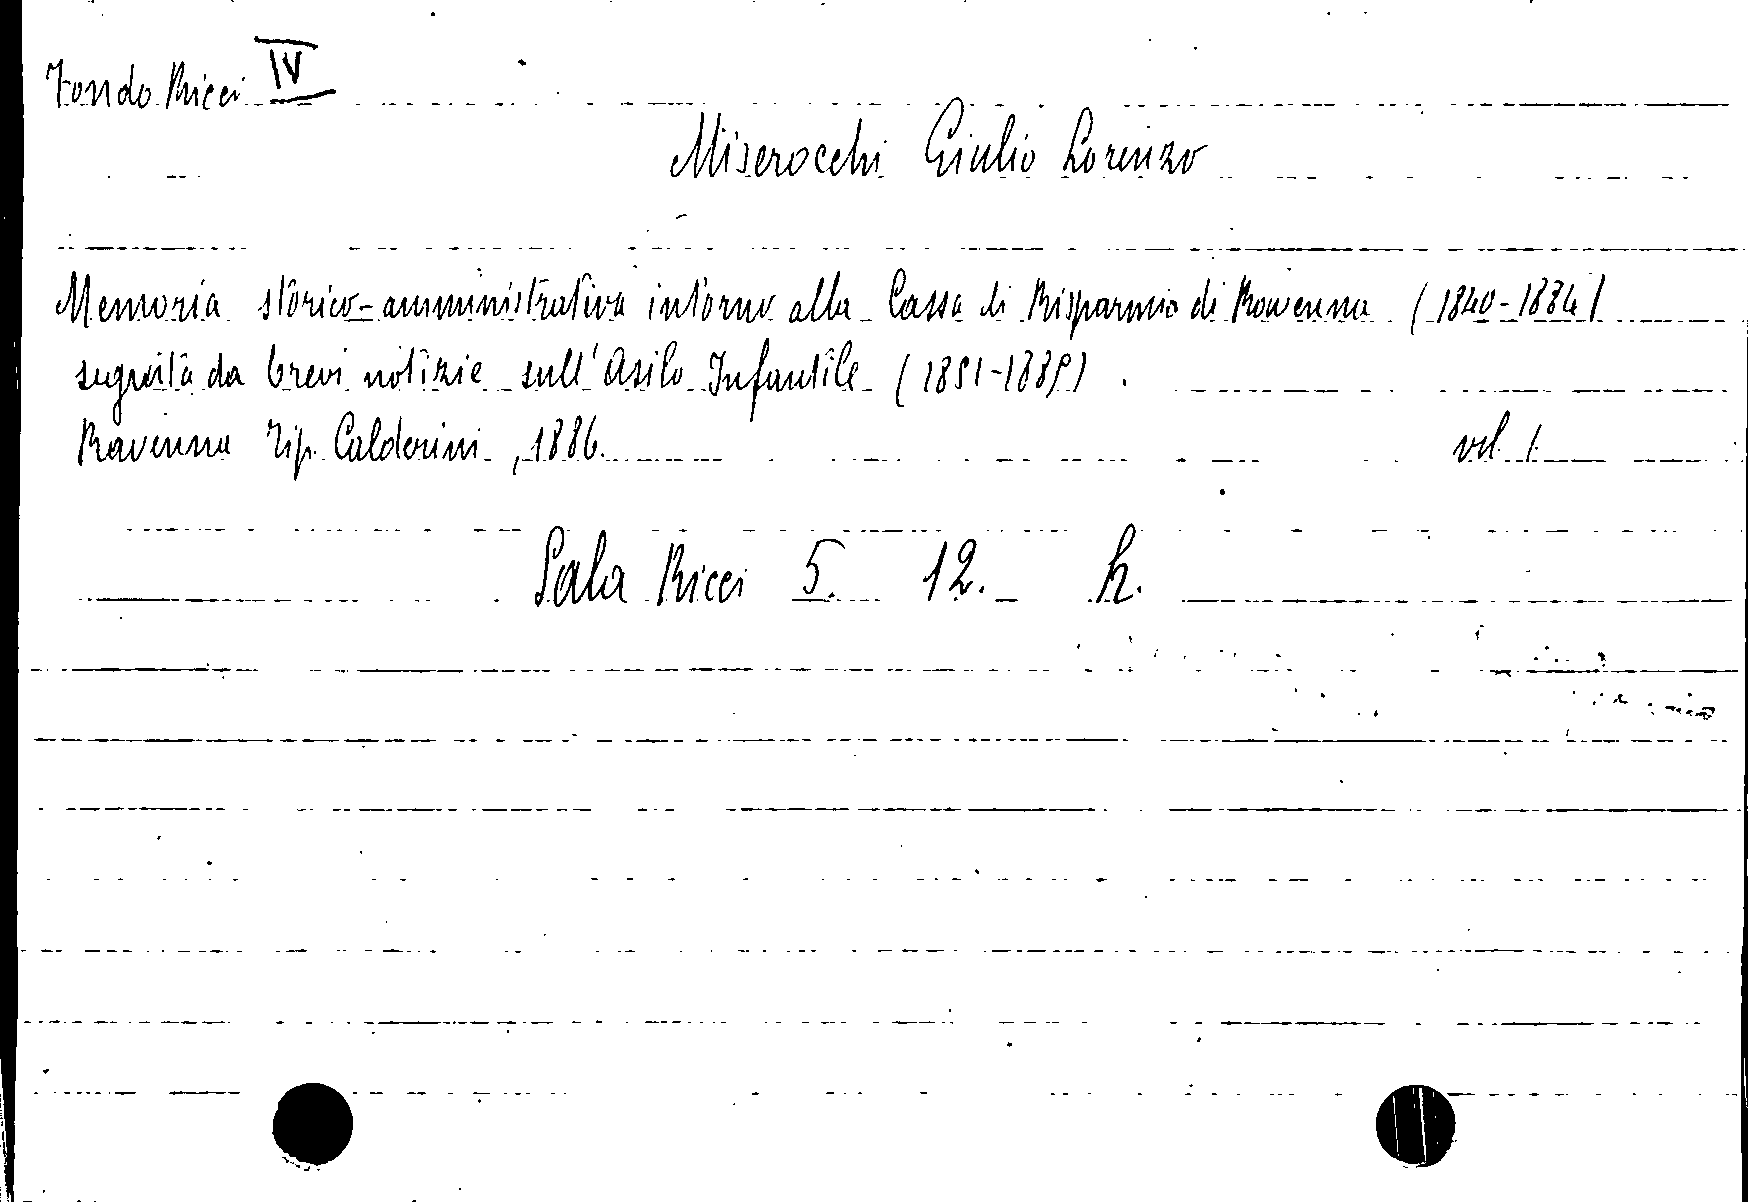 Fondo Ricci IV
Miserocchi Giulio Lorenzo
Memoria storico-amministrativa intorno alla Cassa di Risparmio di Ravenna (1840-1884)
seguita da brevi notizie sull'Asilo Infantile (1851-1885).
Ravenna Tip. Calderini, 1886. vol. 1.
Sala Ricci 5. 12. h.